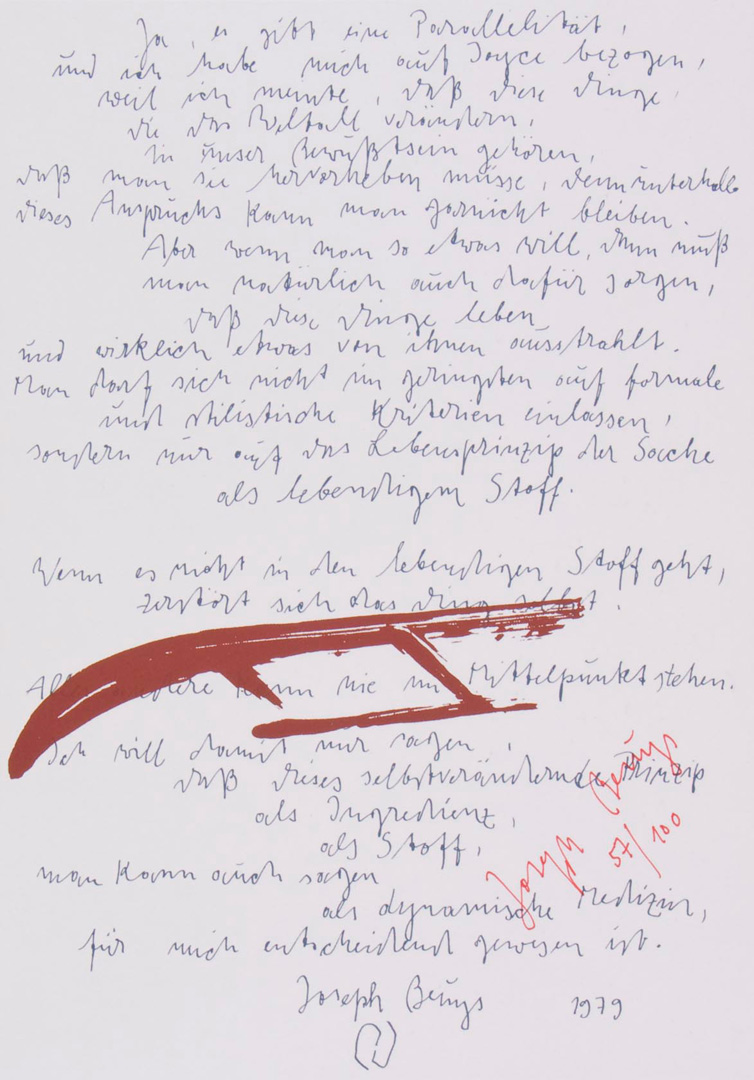 Ja, es gibt eine Parallelität,
und ich habe mich auf Joyce bezogen,
weil ich meinte, daß diese Dinge,
die das Weltall verändern,
in unser Bewußtsein gehören,
daß man sie hervorheben müsse, denn unterhalb
dieses Anspruchs kann man garnicht bleiben.
Aber wenn man so etwas will, dann muß
man natürlich auch dafür sorgen,
daß diese Dinge leben
und wirklich etwas von ihnen ausstrahlt.
Man darf sich nicht im geringsten auf formale
und stilistische Kriterien einlassen,
sondern nur auf das Lebensprinzip der Sache
als lebendigem Stoff.
Wenn es nicht in den lebendigen Stoff geht,
zerstört sich das Ding selbst.
Alles andere kann nie im Mittelpunkt stehen.
Ich will damit nur sagen,
daß dieses selbstverändernde Prinzip
als Ingredienz,
als Stoff,
man kann auch sagen
als dynamische Medizin,
für mich entscheidend gewesen ist.
Joseph Beuys 1979
Joseph Beuys
57/100